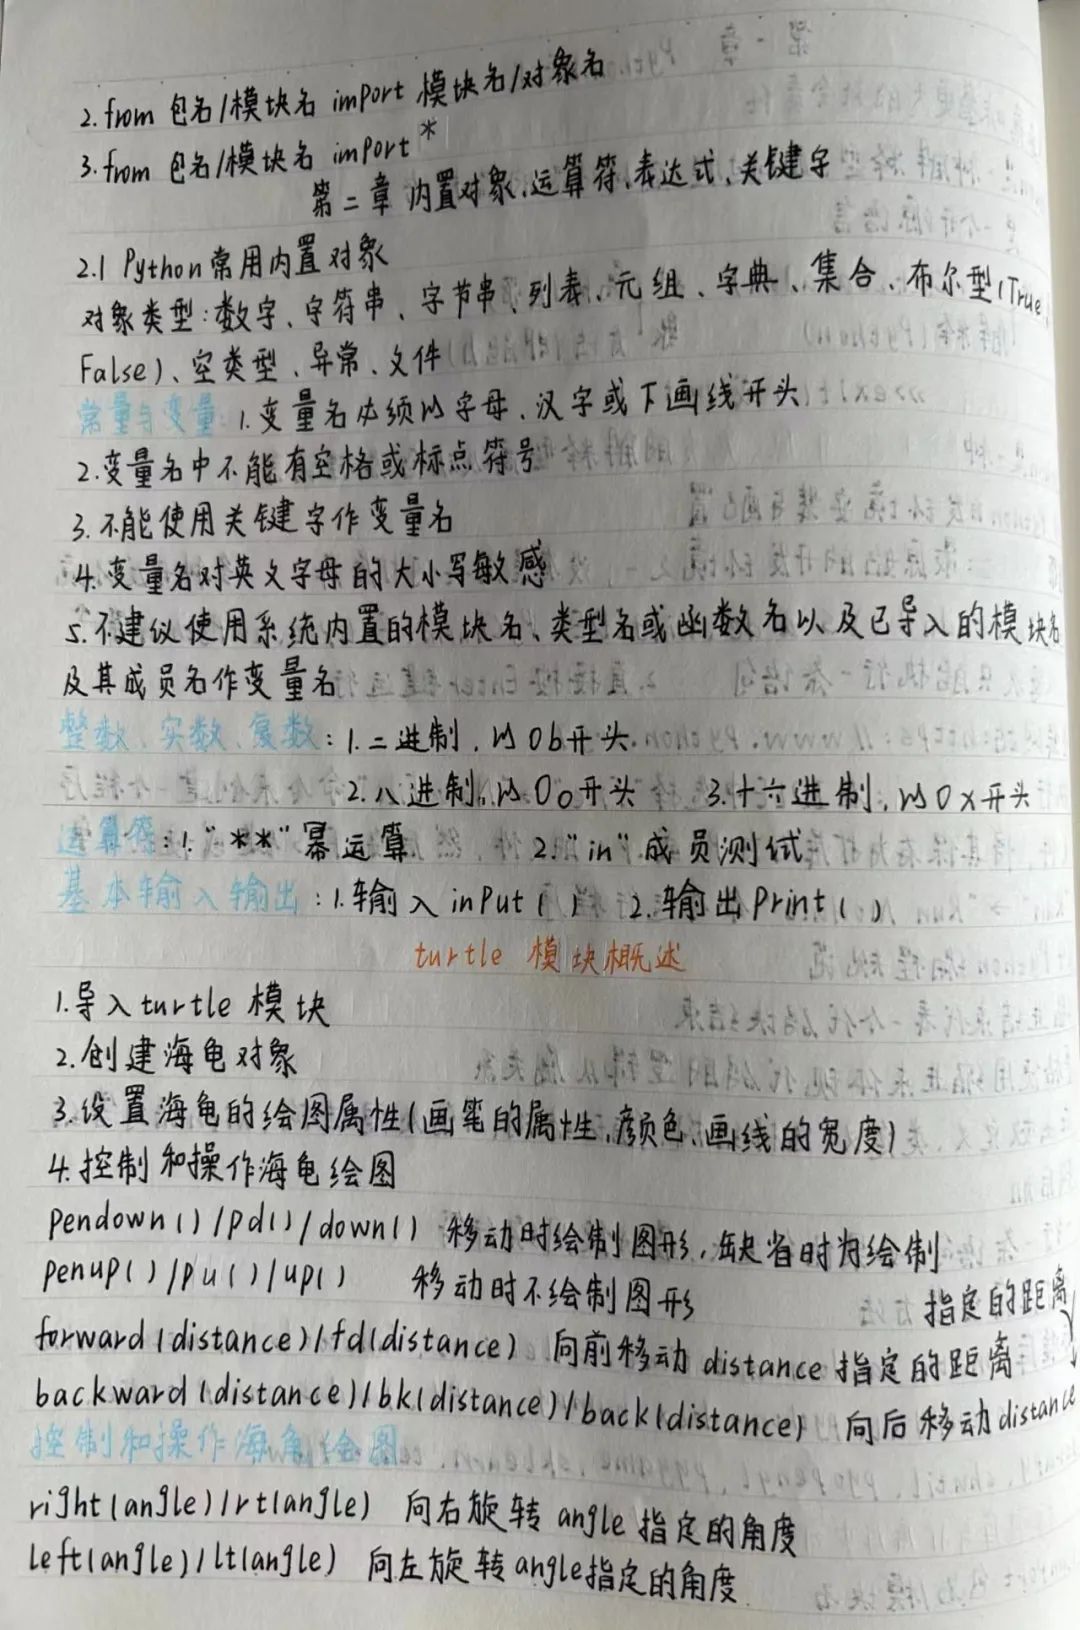 2.from 包名/模块名 imPort 模块名/对象名
3.from 包名/模块名 imPort *
第二章 内置对象、运算符、表达式、关键字
2.1 Python常用内置对象
对象类型:数字、字符串、字节串、列表、元组、字典、集合、布尔型(True、
False)、空类型、异常、文件
常量与变量:1.变量名必须以字母、汉字或下画线开头
2.变量名中不能有空格或标点符号
3.不能使用关键字作变量名
4.变量名对英文字母的大小写敏感
5.不建议使用系统内置的模块名、类型名或函数名以及已导入的模块名
及其成员名作变量名
整数、实数、复数:1.二进制,以0b开头
2.八进制,以0o开头 3.十六进制,以0x开头
运算符:1."**"幂运算 2."in"成员测试
基本输入输出:1.输入inPut() 2.输出Print()
turtle 模块概述
1.导入turtle模块
2.创建海龟对象
3.设置海龟的绘图属性(画笔的属性,颜色、画线的宽度)
4.控制和操作海龟绘图
Pendown()/Pd()/down() 移动时绘制图形,缺省时为绘制
Penup()/Pu()/up() 移动时不绘制图形
指定的距离
forward(distance)/fd(distance) 向前移动distance指定的距离
backward(distance)/bk(distance)/back(distance) 向后移动distance
控制和操作海龟绘图
right(angle)/rt(angle) 向右旋转angle指定的角度
left(angle)/lt(angle) 向左旋转angle指定的角度